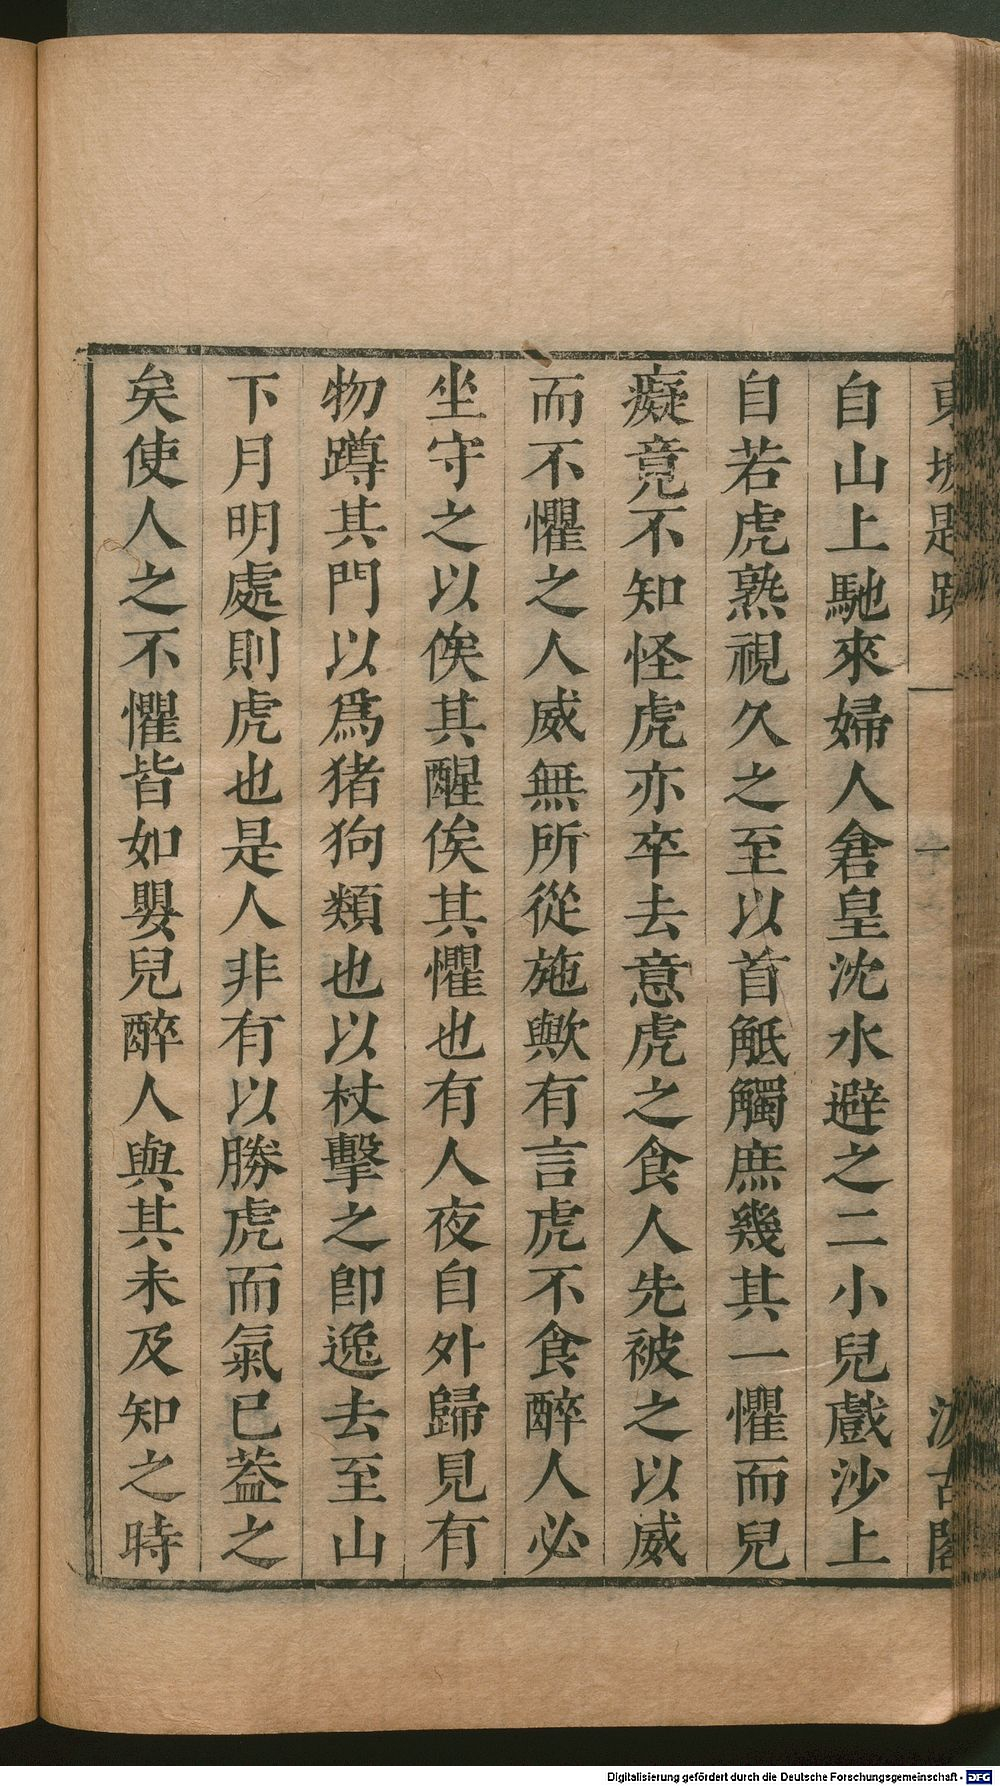 東坡題跋 一 汲古閣
自山上馳來婦人倉皇沈水避之二小兒戲沙上
自若虎熟視久之至以首觝觸庶幾其一懼而兒
癡竟不知怪虎亦卒去意虎之食人先被之以威
而不懼之人威無所從施歟有言虎不食醉人必
坐守之以俟其醒俟其懼也有人夜自外歸見有
物蹲其門以爲猪狗類也以杖擊之卽逸去至山
下月明處則虎也是人非有以勝虎而氣已葢之
矣使人之不懼皆如嬰兒醉人與其未及知之時
Digitalisierung gefördert durch die Deutsche Forschungsgemeinschaft - DFG